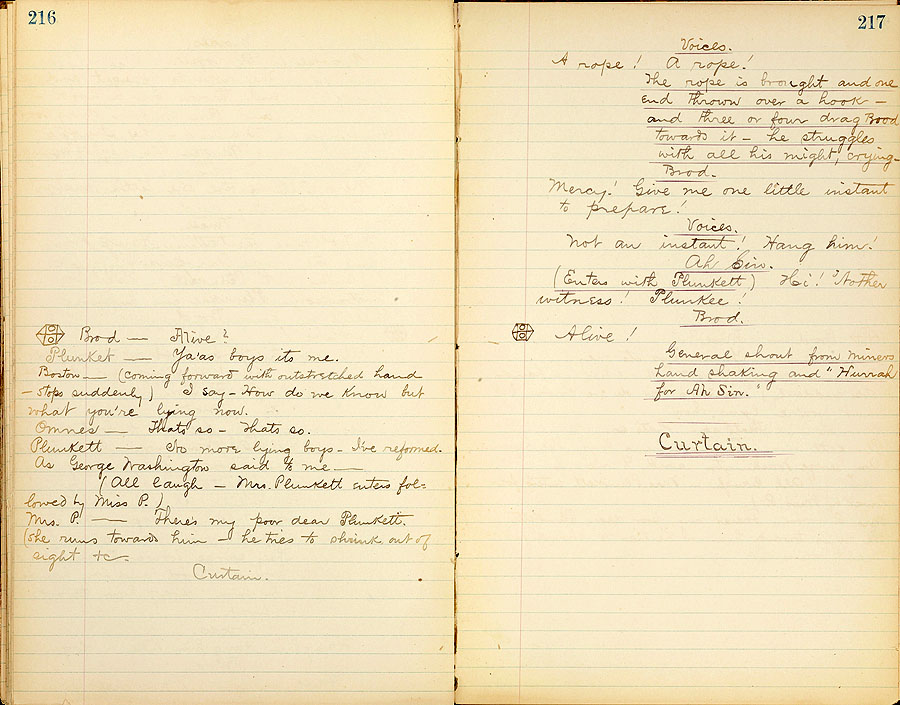 216
Brod — Alive?
Plunket — Ya'as boys its me.
Boston — (coming forward with outstretched hand
— stops suddenly) I say — How do we know but
what you're lying now.
Omnes — Thats so — Thats so.
Plunkett — No more lying boys — I've reformed.
As George Washington said to me —
(All laugh — Mrs. Plunkett enters fol-
lowed by Miss P.)
Mrs. P. — There's my poor dear Plunkett.
(She runs towards him — he tries to shrink out of
sight &c —
Curtain.
217
Voices.
A rope! A rope!
The rope is brought and one
end thrown over a hook —
and three or four drag Brod
towards it — he struggles
with all his might, crying —
Brod.
Mercy! Give me one little instant
to prepare!
Voices.
Not an instant! Hang him!
Ah Sin.
(Enters with Plunkett) Hi! 'Nother
witness! Plunkee!
Brod.
Alive!
General shout from miners
hand shaking and "Hurrah
for Ah Sin."
Curtain.